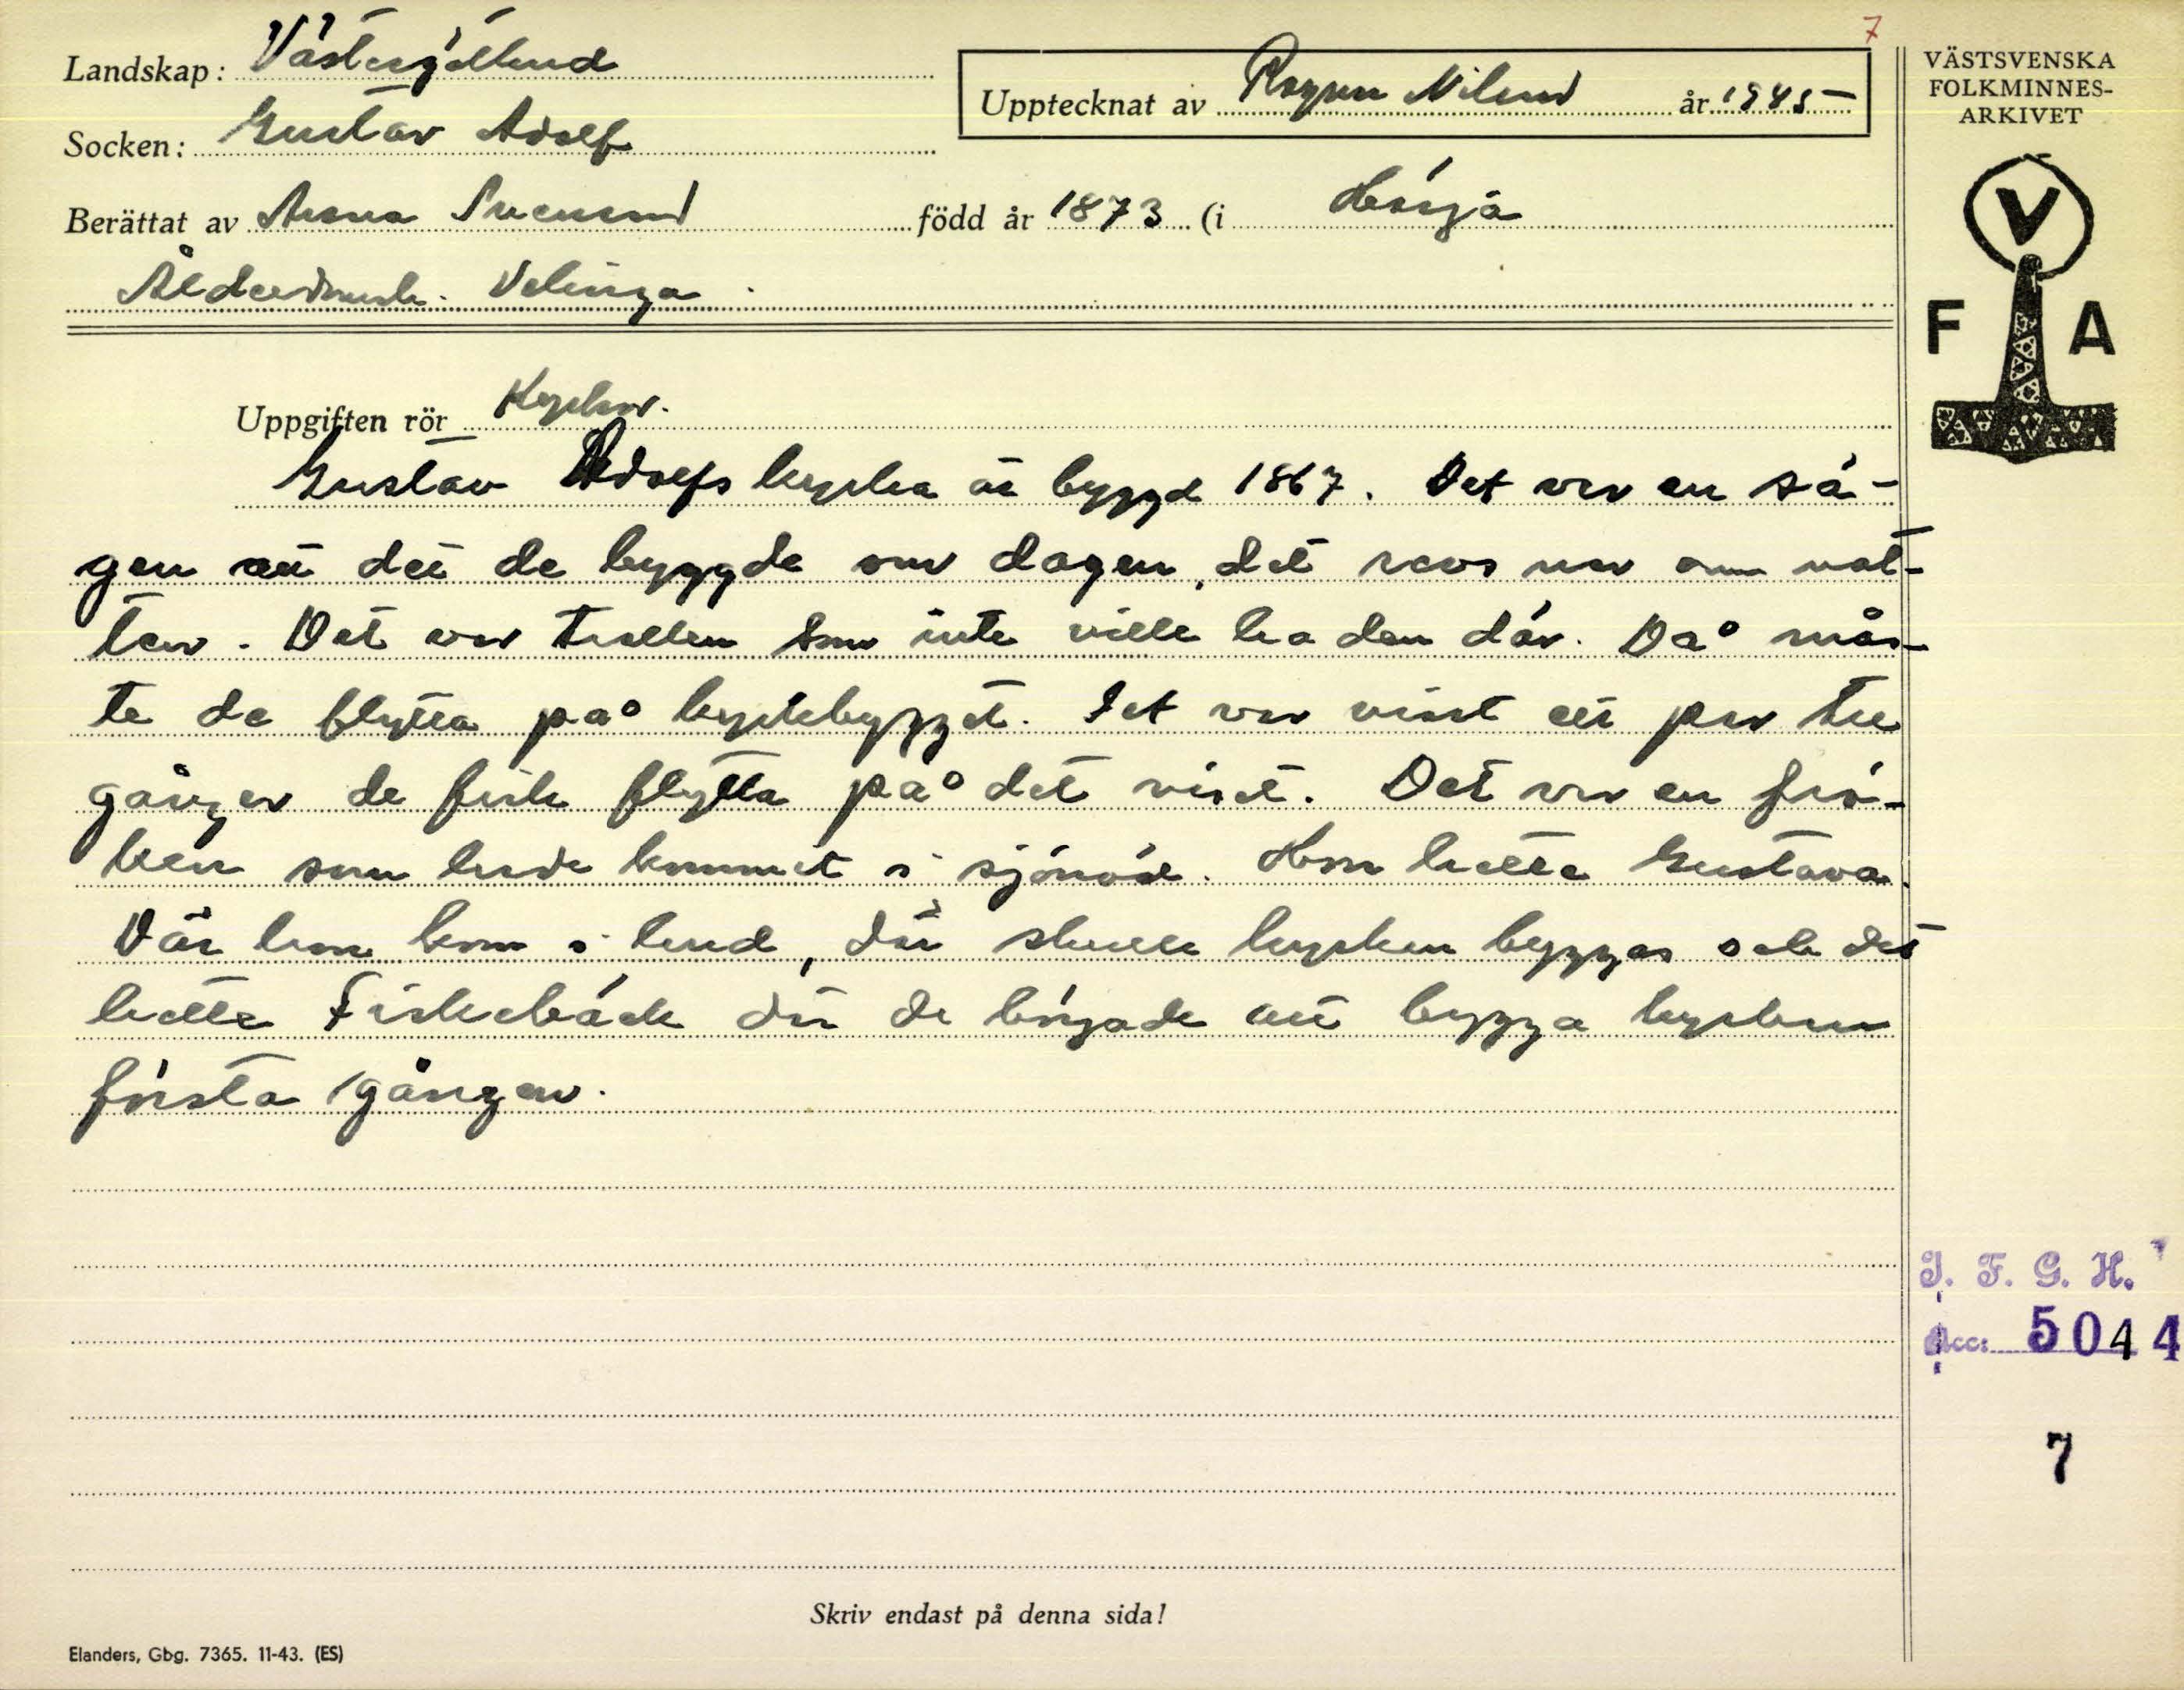 7
Landskap: Västergötland
Upptecknat av Ragnar Nilsson år 1945
VÄSTSVENSKA
FOLKMINNES-
ARKIVET
Socken: Gustav Adolf
Berättat av Anna Svensson född år 1873 (i
V
F A
Ålderdomsh. Velinga
Uppgiften rör Kyrkor.
Gustav Adolfs kyrka är byggd 1867. Det var en sä-
gen att det de byggde om dagen, det revs ner om nat-
ten. Det var trollen som inte ville ha den där. Då mås-
te de flytta på kyrkbygget. Det var visst ett par tre
gånger de fick flytta på det visst. Det var en frö-
ken som hade kommet i sjönöd. Hon hette Gustava.
Där hon kom i land, där skulle kyrkan byggas och det
hette Fiskebäck där de började att bygga kyrkan
första gången.
I. F. G. H.
Acc: 5044
7
Skriv endast på denna sida!
Elanders, Gbg. 7365. 11-43. (ES)